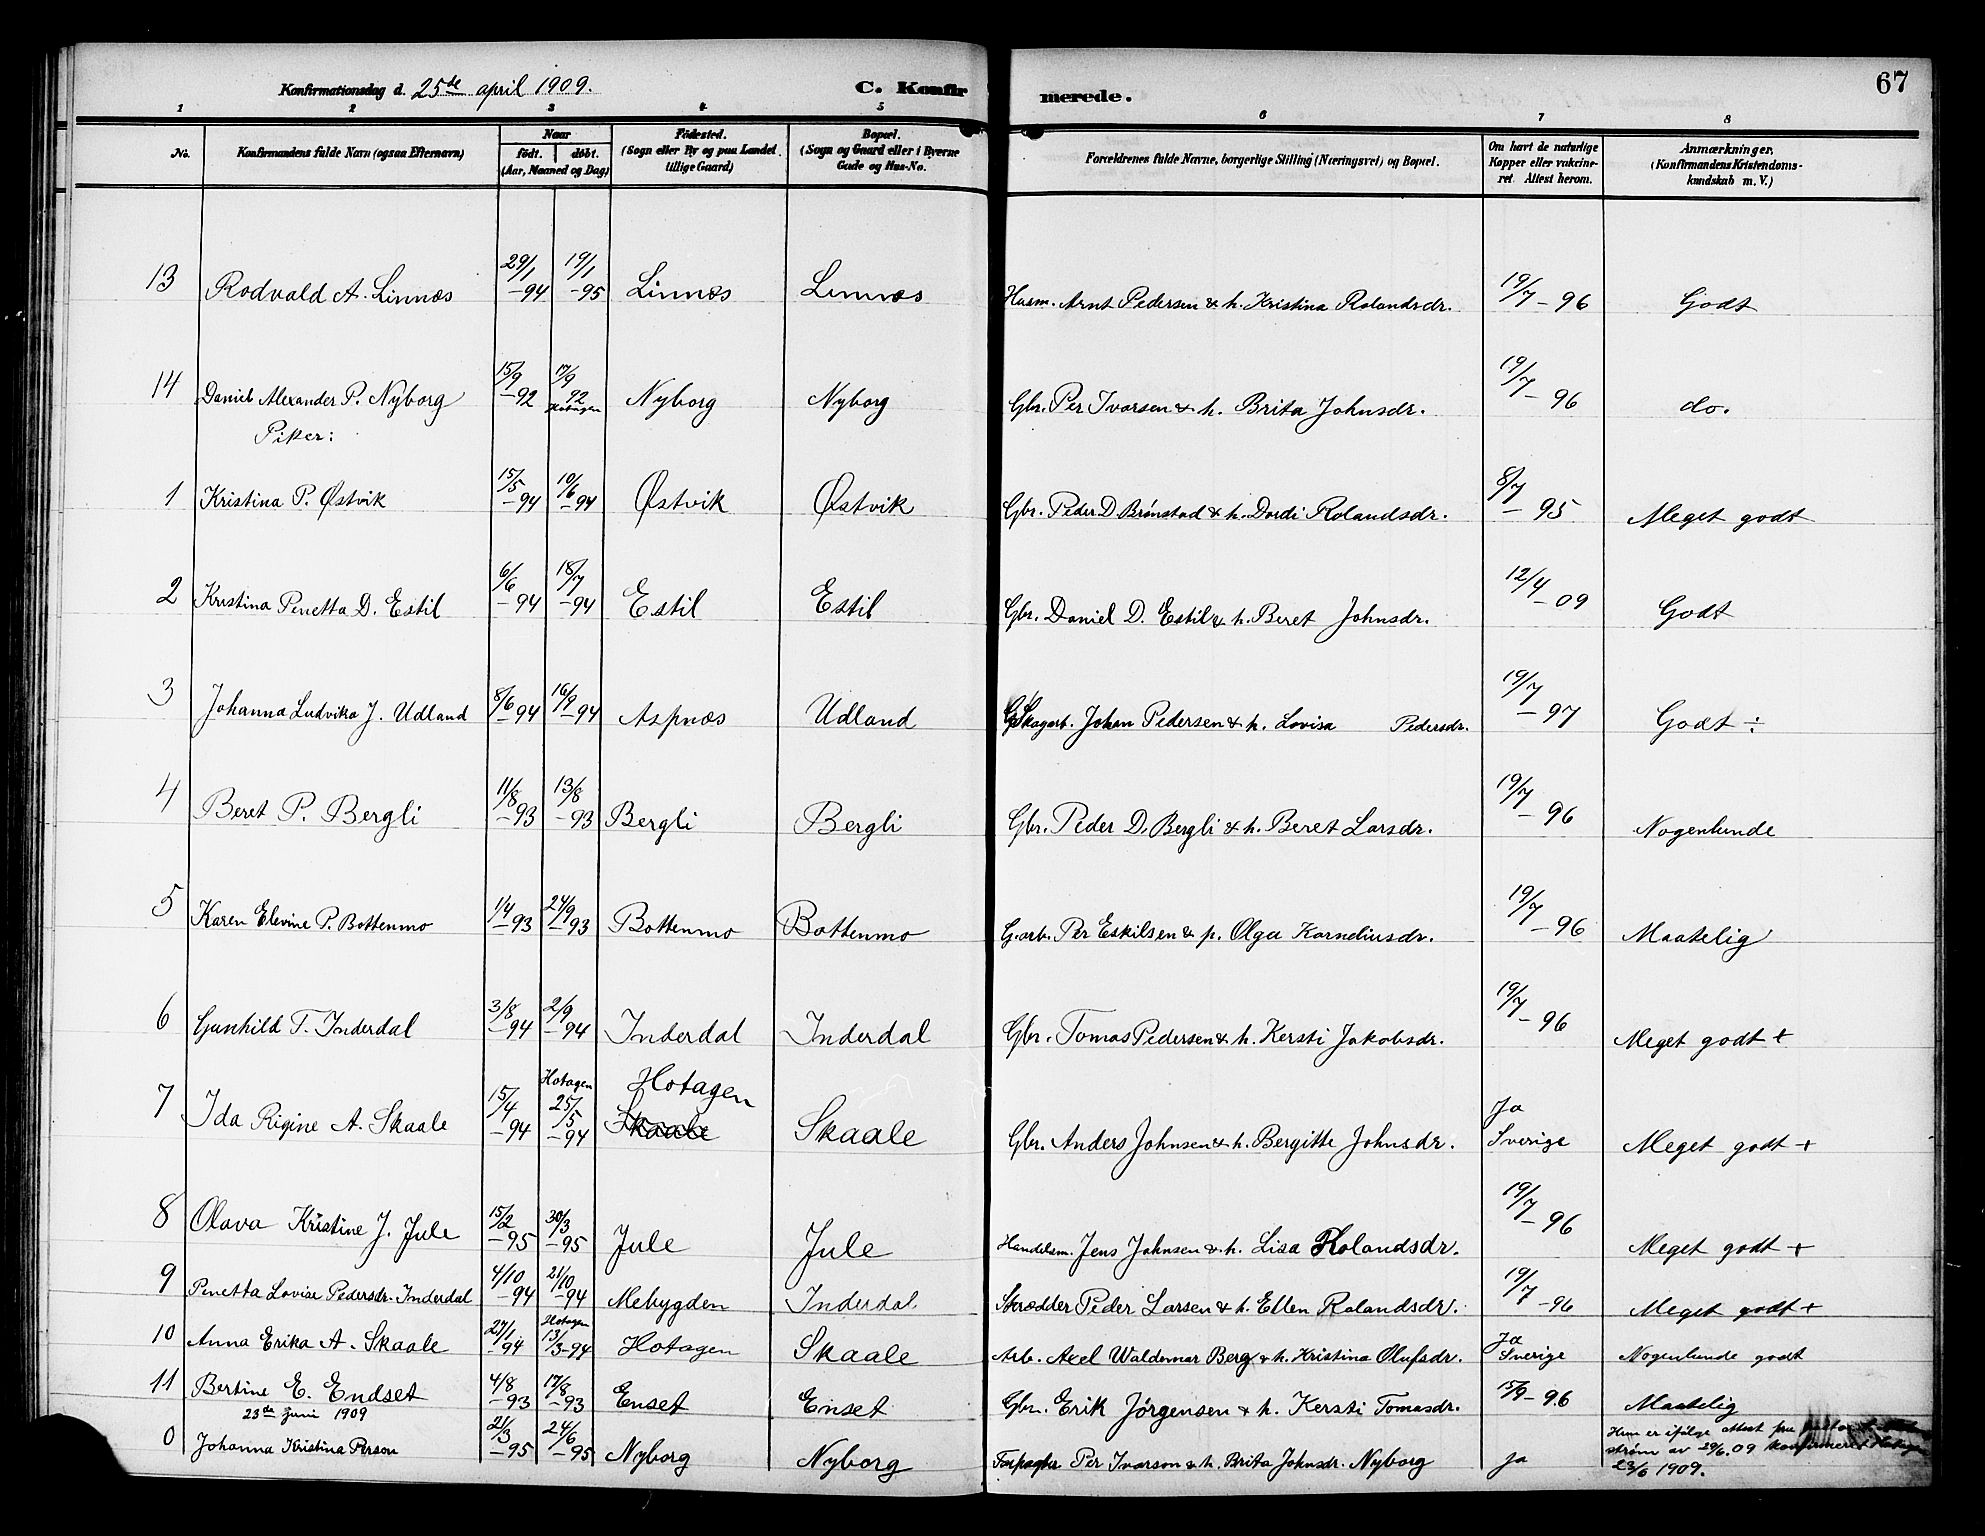 67
Konfirmationsdag d. 25de april 1909.
C. Konfirmerede.
1 2 3 4 5 6 7 8
No. Konfirmandens fulde Navn (ogsaa Efternavn) Naar født. døbt. (Aar, Maaned og Dag) Fødested. (Sogn eller By og paa Landet tillige Gaard) Bopæl. (Sogn og Gaard eller i Byerne Gade og Hus-No. Forældrenes fulde Navne, borgerlige Stilling (Næringsvei) og Bopæl. Om havt de naturlige Kopper eller vakcineret. Attest herom. Anmærkninger, (Konfirmandens Kristendomskundskab m. V.)
13 Rodvald A. Linnæs 29/1 -94 19/1 -95 Linnæs Linnæs Husm. Arnt Pedersen & h. Kristina Rolandsdr. 19/7 -96 Godt
14 Daniel Alexander P. Nyborg 15/9 -92 17/9 92 Hotagen Nyborg Nyborg Gbr. Per Ivarsen & h. Brita Johnsdr. 19/7 -96 do.
Piker:
1 Kristina P. Østvik 15/5 -94 10/6 -94 Østvik Østvik Gbr. Peder D. Brønstad & h. Dordi Rolandsdr. 8/7 -95 Meget godt
2 Kristina Penetta D. Estil 6/6 -94 18/7 -94 Estil Estil Gbr. Daniel D. Estil & h. Beret Johnsdr. 12/4 -09 Godt
3 Johanna Ludvika J. Udland 8/6 -94 16/9 -94 Aspnæs Udland Skogarb. Johan Pedersen & h. Lovisa Pedersdr. 19/7 -97 Godt ÷
4 Beret P. Bergli 11/8 -93 13/8 -93 Bergli Bergli Gbr. Peder D. Bergli & h. Beret Larsdr. 19/7 -96 Nogenlunde
5 Karen Elevine P. Bottenmo 1/4 -93 24/9 -93 Bottenmo Bottenmo G.arb. Per Eskilsen & p. Olga Korneliusdr. 19/7 -96 Maatelig
6 Gunhild T. Inderdal 3/8 -94 2/9 -94 Inderdal Inderdal Gbr. Tomas Pedersen & h. Kersti Jakobsdr. 19/7 -96 Meget godt +
7 Ida Rigine A. Skaale 15/4 -94 Hotagen 25/5 -94 Hotagen Skaale Skaale Gbr. Anders Johnsen & h. Bergitte Johnsdr. Ja Sverige Meget godt +
8 Olava Kristine J. Jule 15/2 -95 30/3 -95 Jule Jule Handelsm. Jens Johnsen & h. Lisa Rolandsdr. 19/7 -96 Meget godt +
9 Penetta Lovise Pedersdr. Inderdal 4/10 -94 21/10 -94 Mebygden Inderdal Skrædder Peder Larsen & h. Ellen Rolandsdr. 19/7 -96 Meget godt +
10 Anna Erika A. Skaale 27/1 -94 Hotagen 13/3 -94 Hotagen Skaale Arb. Axel Waldemar Berg & h. Kristina Olufsdr. Ja Sverige Nogenlunde godt
11 Bertine E. Endset 4/8 -93 17/8 -93 Enset Enset Gbr. Erik Jørgensen & h. Kersti Tomasdr. 15/9 -96 Maatelig
23de Juni 1909
0 Johanna Kristina Person 21/3 -95 24/6 -95 Nyborg Nyborg Forpagter Per Ivarson & h. Brita Johnsdr. Nyborg Ja Hun er ifølge attest fra pastor
strøm av 29/6.09 konfirmeret i Hotagen
23/6 1909.